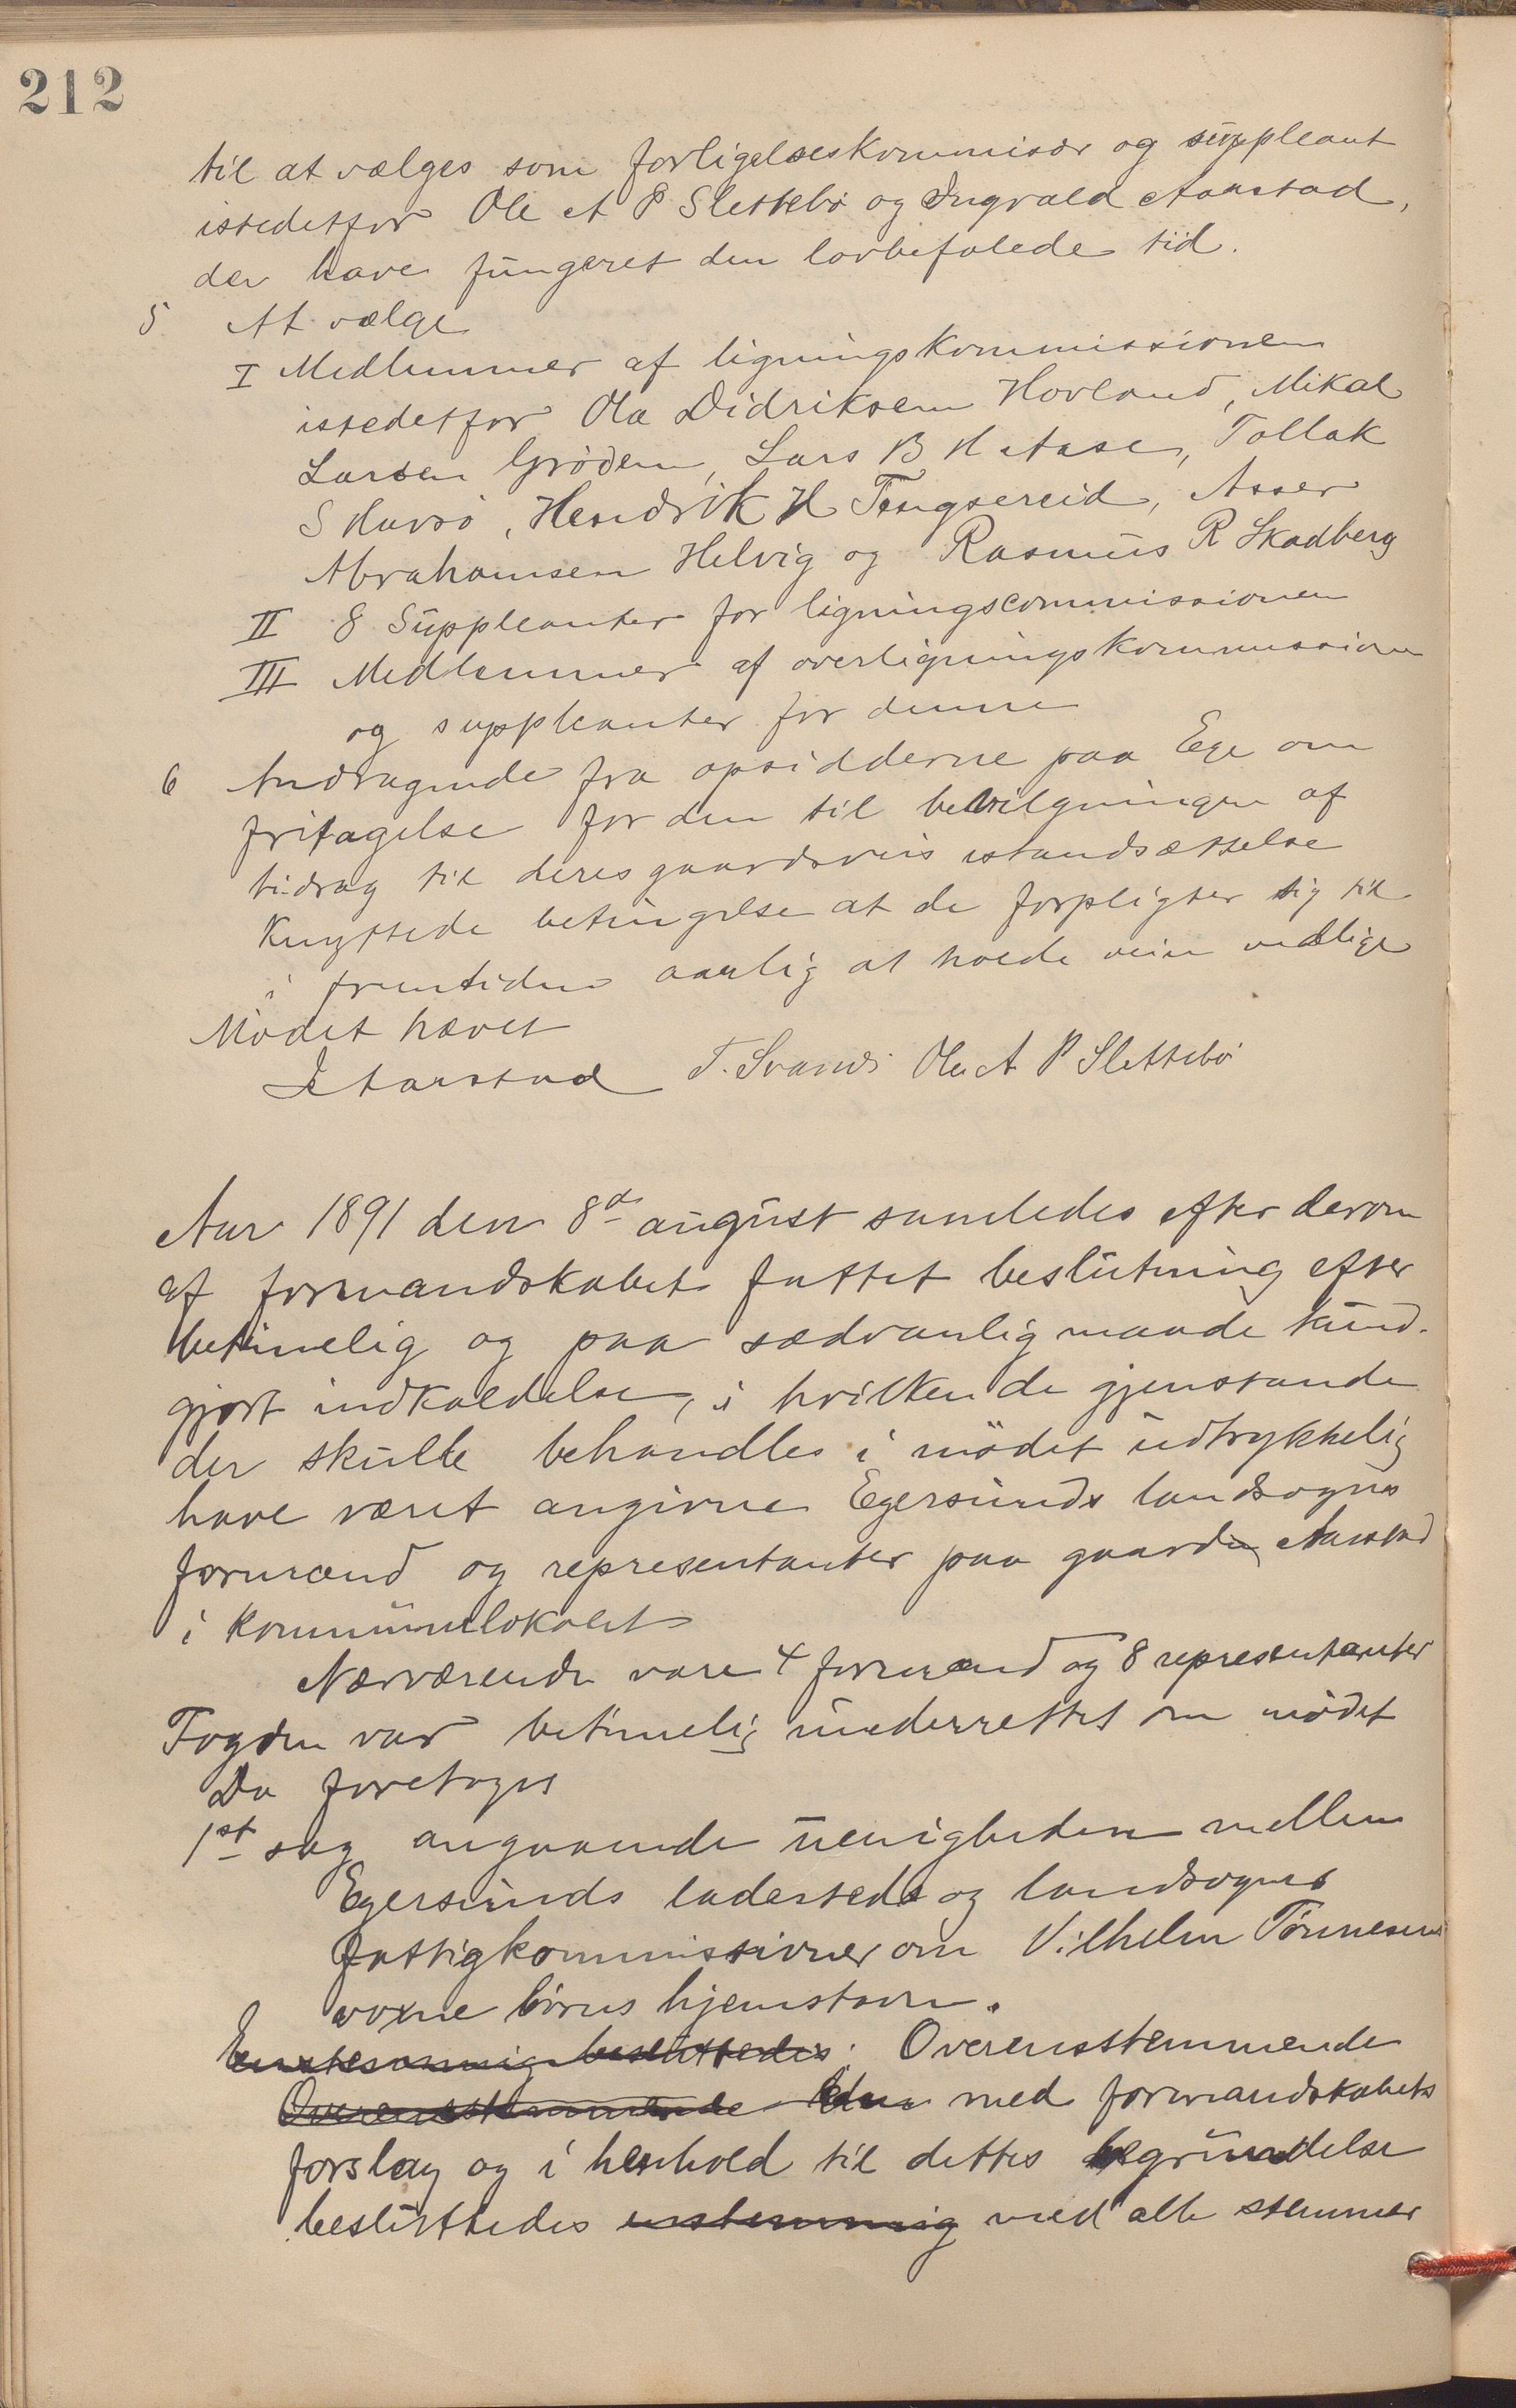 212
til at vælges som forligelseskommisær og suppleant
istedetfor Ole A P Slettebö og Ingvald Aarstad,
der have fungeret den lovbefalede tid.
5 At vælge
I Medlemmer af ligningskommissionen
istedetfor Ola Didriksen Hovland, Mikal
Larsen Grøden, Lars B H Aase, Tollak
S Havsö, Hendrik H Tengsereid, Asser
Abrahamsen Helvig og Rasmus R Skadberg
II 8 Suppleanter for ligningscommissionen
III Medlemmer af overligningskommissionen
og suppleanter for denne
6 Andragende fra opsidderne paa Ege om
fritagelse for den til bevilgningen af
bidrag til deres gaardsveis istandsættelse
knyttede betingelse at de forpligter sig til
i fremtiden aarlig at holde veien vedlige
Mödet hævet
I Aarstad T. Svanes Ole A P Slettebö
Aar 1891 den 8d august samledes efter derom
af formandskabet fattet beslutning efter
betimelig og paa sædvanlig maade kund-
gjort indkaldelse, i hvilken de gjenstande
der skulle behandles i mödet udtrykkelig
have været angivne Egersunds landsogns
formænd og representanter paa gaarden Aarstad
i kommunelokalet
Nærværende vare 4 formænd og 8 representanter
Fogden var betimelig underrettet om mödet
Da foretoges
1st sag angaaende uenigheden mellem
Egersunds ladesteds og landsogns
fattigkommissioner om Vilhelm Tönnesens
voxne börns hjemstavn.
Enstemmig besluttedes: Overensstemmende
Overensstemmende med formandskabets
forslag og i henhold til dettes begrundelse
besluttedes enstemmig med alle stemmer